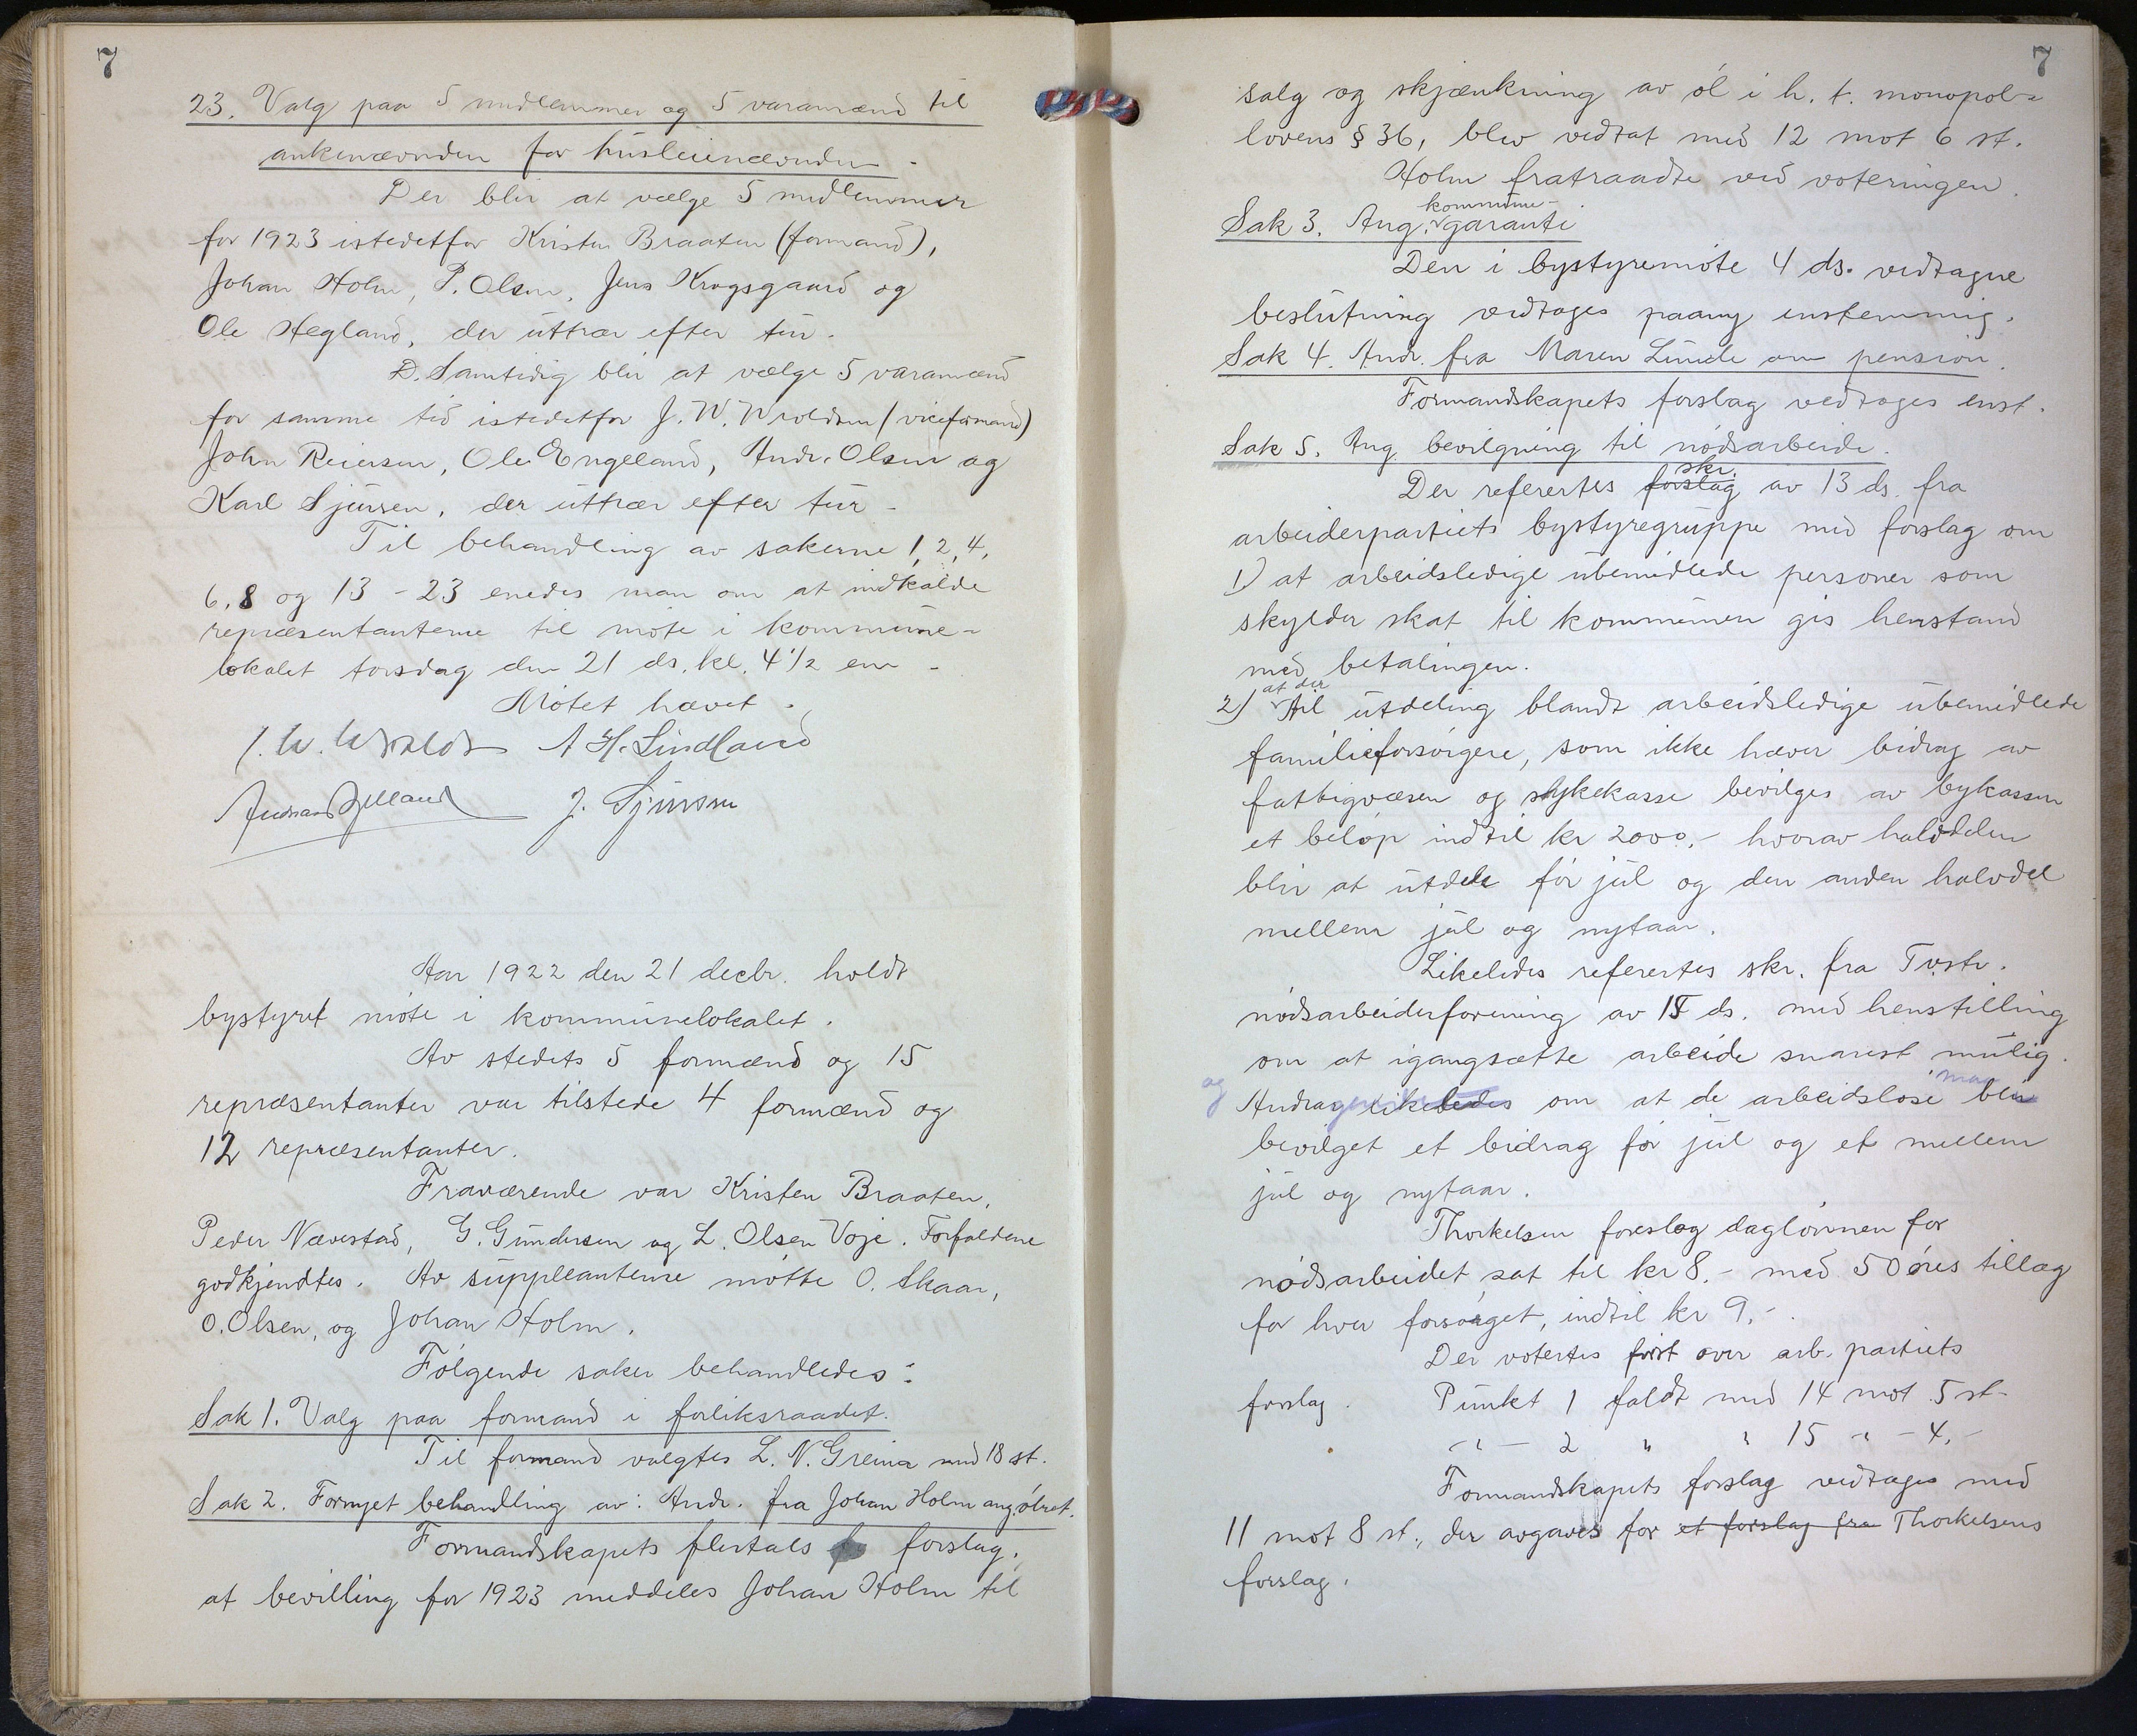 7
23. Valg paa 5 medlemmer og 5 varamænd til
ankenævnden for husleienævnden.
Der blir at vælge 5 medlemmer
for 1923 istedetfor Kristen Braaten (formand),
Johan Holm, P. Olsen, Jens Krogsgaard og
Ole Hegland, der uttrær efter tur.
D. Samtidig blir at vælge 5 varamænd
for samme tid istedetfor J. W. Wroldsen (viceformand)
John Reiersen, Ole Engeland, Andr. Olsen og
Karl Sjursen, der uttrær efter tur.
Til behandling av sakerne 1, 2, 4,
6, 8 og 13 - 23 enedes man om at indkalde
repræsentanterne til møte i kommune-
lokalet torsdag den 21 ds. kl. 4 1/2 em.
Møtet hævet.
J. W. Wrolds A H. Lindland
J. Sjursen
Aar 1922 den 21 decbr. holdt
bystyret møte i kommunelokalet.
Av stedets 5 formænd og 15
repræsentanter var tilstede 4 formænd og
12 repræsentanter.
Fraværende var Kristen Braaten,
Peder Nævestad, G. Gundersen og L. Olsen Voje. Forfaldene
godkjendtes. Av suppleanterne møtte O. Skaar,
O. Olsen, og Johan Holm.
Følgende saker behandledes:
Sak 1. Valg paa formand i forliksraadet.
Til formand valgtes L. N. Greina med 18 st.
Sak 2. Fornyet behandling av: Andr. fra Johan Holm ang. ølret.
Formandskapets flertals forslag,
at bevilling for 1923 meddeles Johan Holm til
7
salg og skjænkning av øl i h. t. monopol-
lovens § 36, blev vedtat med 12 mot 6 st.
Holm fratraadte ved voteringen.
kommune-
Sak 3. Ang. garanti
Den i bystyremøte 4 ds. vedtagne
beslutning vedtages paany enstemmig.
Sak 4. Andr. fra Maren Lunde om pension.
Formandskapets forslag vedtages enst.
Sak 5. Ang. bevilgning til nødsarbeide.
skr.
Der referertes forslag av 13 ds. fra
arbeiderpartiets bystyregruppe med forslag om
1) at arbeidsledige ubemidlede personer som
skylder skat til kommunen gis henstand
med betalingen.
at der
2) til utdeling blandt arbeidsledige ubemidlede
familieforsørgere, som ikke hæver bidrag av
fattigvæsen og sykekasse bevilges av bykassen
et beløp indtil kr 2000,- hvorav halvdelen
blir at utdele før jul og den anden halvdel
mellem jul og nytaar.
Likeledes referertes skr. fra Tvstr.
nødsarbeiderforening av 15 ds. med henstilling
om at igangsætte arbeide snarest mulig.
og man
Andrag likeledes om at de arbeidsløse blir
bevilget et bidrag før jul og et mellem
jul og nytaar.
Thorkelsen foreslog daglønnen for
nødsarbeidet sat til kr 8,- med 50 øres tillæg
for hver forsørget, indtil kr 9,-
Der votertes først over arb. partiets
forslag. Punkt 1 faldt med 14 mot 5 st.
-"- 2 " " 15 " - 4,-
Formandskapets forslag vedtages med
11 mot 8 st., der avgaves for et forslag fra Thorkelsens
forslag.